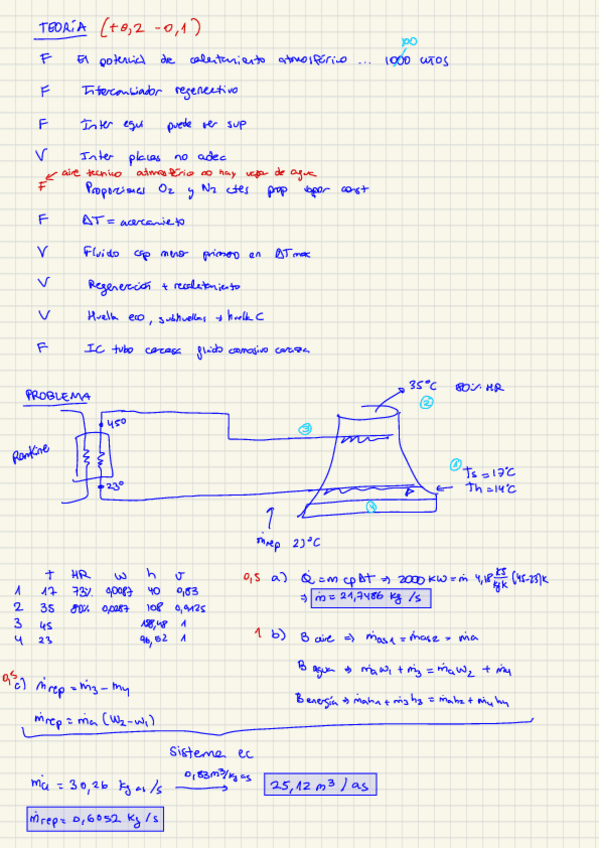 TEORÍA (+0,2 -0,1)
100
F El potencial de calentamiento atmosférico ... 1000 años
F Intercambiador regenerativo
F Inter equi puede ser sup
V Inter placas no adec
aire tecnico atmosférico no hay vapor de agua
F Proporciones O2 y N2 ctes prop vapor const
F ΔT = acercamiento
V Fluido cap menor primero en ΔT max
V Regeneración + recalentamiento
V Huella eco, subhuellas → huella C
F IC tubo carcasa fluido corrosivo carcasa
PROBLEMA
35°C 80% HR
2
45°
3
Rankine
1
Ts = 17°C
Th = 14°C
23°
4
ṁrep 23°C
T HR w h v
1 17 73% 0,0087 40 0,83
2 35 80% 0,0287 108 0,9125
3 45 188,48 1
4 23 96,52 1
0,5 a) Q̇ = ṁ cp ΔT ⇒ 2000 KW = ṁ 4,18 KJ/KgK (45-23)K
⇒ ṁ = 21,7486 Kg/s
1 b) B aire ⇒ ṁas1 = ṁas2 = ṁa
B agua ⇒ ṁa w1 + ṁ3 = ṁa w2 + ṁ4
B energía ⇒ ṁa h1 + ṁ3 h3 = ṁa h2 + ṁ4 h4
0,5 c) ṁrep = ṁ3 - ṁ4
ṁrep = ṁa (w2 - w1)
Sistema ec
ṁa = 30,26 Kg as/s 0,83 m³/kg as → 25,12 m³/as
ṁrep = 0,6052 Kg/s